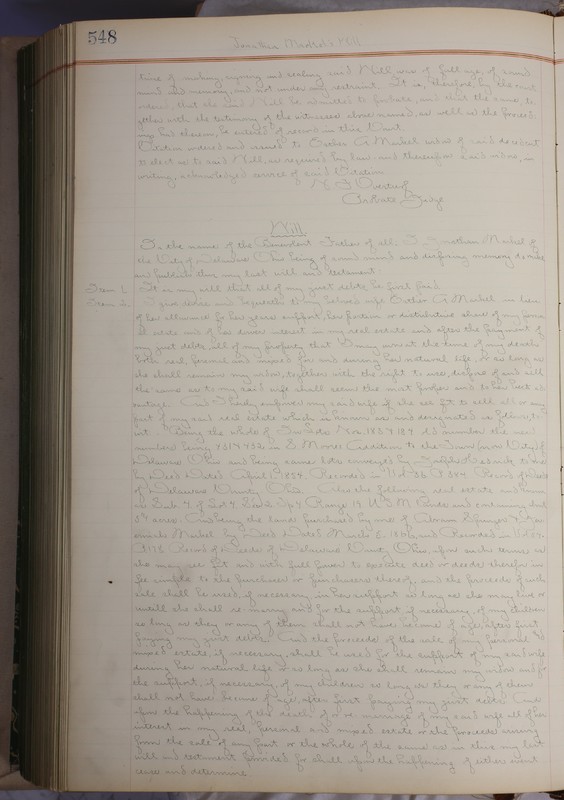 548
Jonathan Markel's Will
time of making, signing and sealing said Will, was of full age, of sound
mind and memory, and not under any restraint. It is, therefore, by the court
ordered, that the said Will be admitted to probate, and that the same, to
gether with the testimony of the witnesses above named, as well as the proceed
ings had therein, be entered of record in this Court.
Citation ordered and issued to Esther A Markel widow of said decedent
to elect as to said Will, as required by law and thereupon said widow, in
writing, acknowledged service of said Citation
Overturf
Probate Judge
Will
In the name of the Benevolent Father of all: I, Jonathan Markel of
the City of Delaware Ohio being of sound mind and disposing memory do make
and publish this my last will and testament:
Item 1. It is my will that all of my just debts be first paid.
Item 2. I give devise and bequeath to my beloved wife Esther A Markel in lieu
of her allowance for her years support, her portion or distributive share of my personal
estate and of her dower interest in my real estate and after the payment of
my just debts all of my property that I may own at the time of my death
both real, personal and mixed for and during her natural life, or so long as
she shall remain my widow, together with the right to use, dispose of and sell
the same as to my said wife shall seem the most proper and to her best ad
vantage. And I hereby empower my said wife if she see fit to sell all or any
part of my said real estate which is known as and designated as follows, to
wit: Being the whole of In Lots Nos.
number being in Moores Addition to the Town (now City) of
Delaware Ohio and being same lots conveyed by
by Deed Dated April Recorded in Vol Record of Deeds
of Delaware County Ohio. Also the following real estate and known
as Sub of Lot Range 19. U.S.M. Lands and containing
acres. And being the lands purchased by me of Abram
Markel by Deed Dated March and Recorded in Vol
Record of Deeds of Delaware County Ohio, upon such terms as
she may see fit and with full power to execute deed or deeds therefor in
fee simple to the purchaser or purchasers thereof, and the proceeds of such
sale shall be used, if necessary, in her support so long as she may live or
until she shall re-marry and for the support, if necessary, of my children
so long as they or any of them shall not have become of age, after first
paying my just debts. And the proceeds of the sale of my personal and
mixed estate, if necessary, shall be used for the support of my said wife
during her natural life or so long as she shall remain my widow and for
the support, if necessary, of my children so long as they or any of them
shall not have become of age, after first paying my just debts. And
upon the happening of the death of or re-marriage of my said wife all of her
interest in my real, personal and mixed estate or the proceeds arising
from the sale of any part or the whole of the same as in this my last
will and testament provided for shall upon the happening of either event
cease and determine